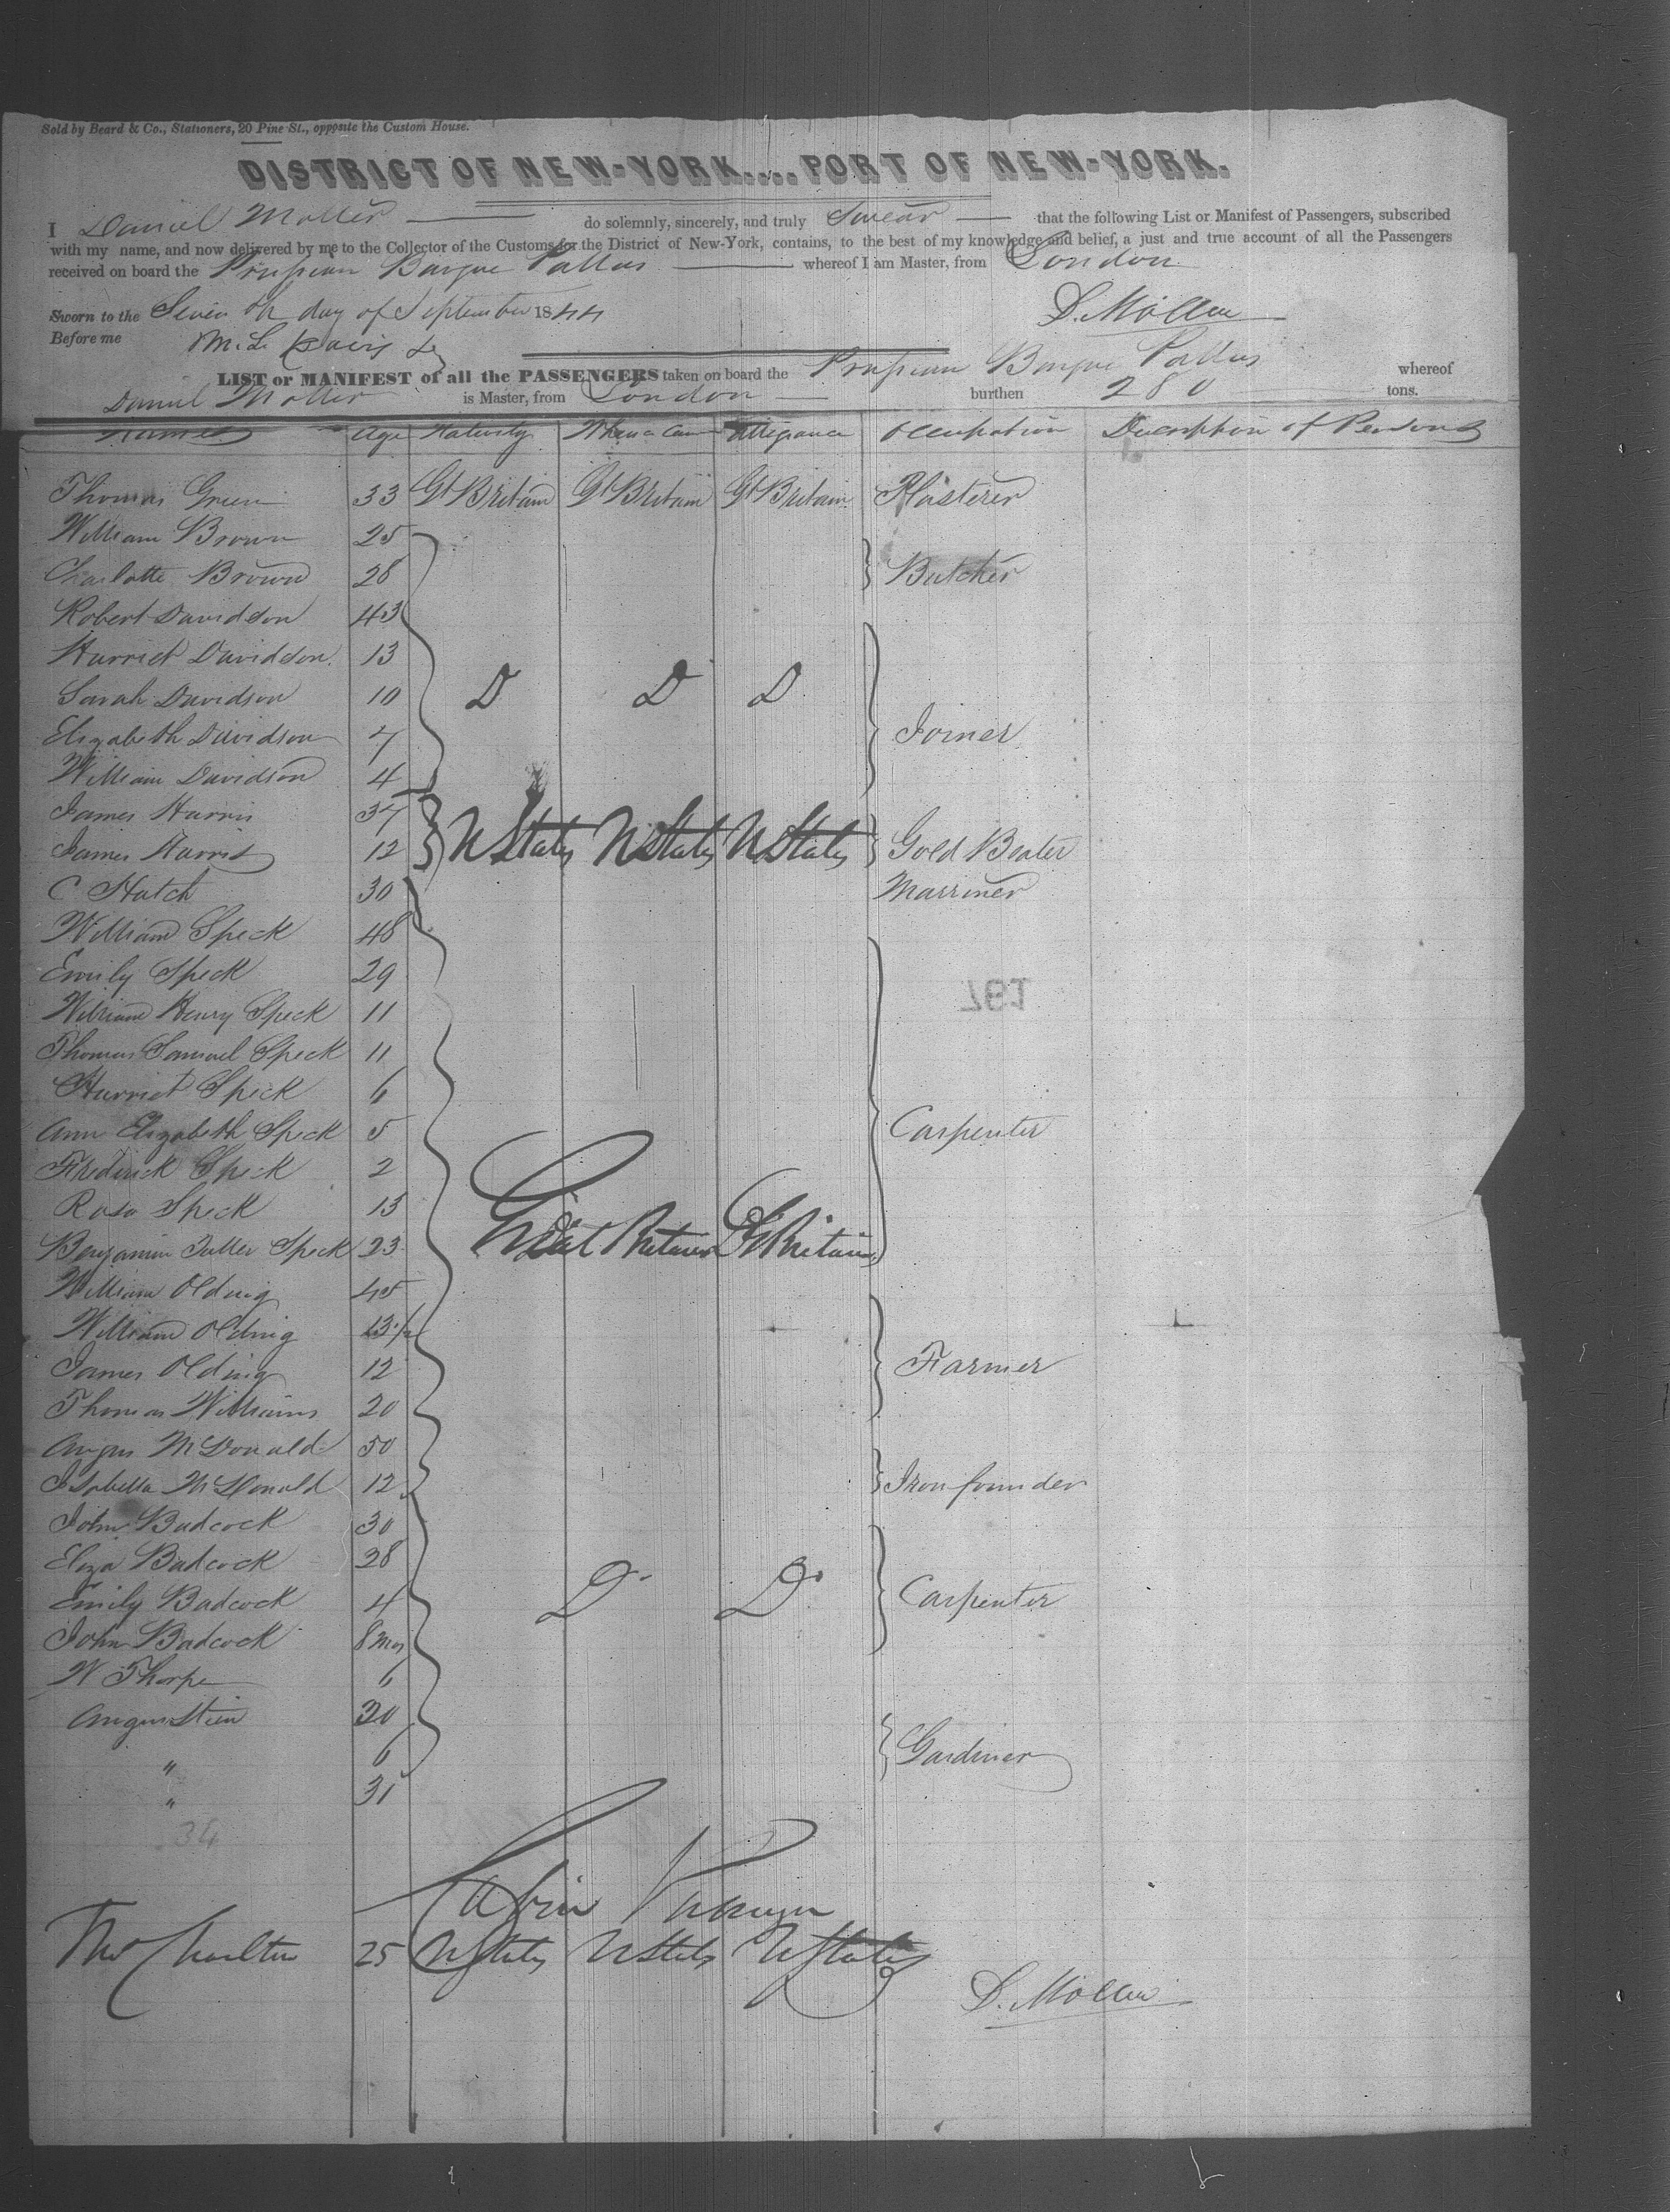 Sold by Beard & Co., Stationers, 20 Pine St., opposite the Custom House.
DISTRICT OF NEW-YORK....PORT OF NEW-YORK.
I Daniel Moller do solemnly, sincerely, and truly Swear that the following List or Manifest of Passengers, subscribed
with my name, and now delivered by me to the Collector of the Customs for the District of New-York, contains, to the best of my knowledge and belief, a just and true account of all the Passengers
received on board the Prussian Barque Pallas whereof I am Master, from London
Sworn to the Seventh day of September 1844 D. Möller
Before me
LIST or MANIFEST of all the PASSENGERS taken on board the Prussian Barque Pallas whereof
Daniel Moller is Master, from London burthen 280 tons.
Names Age Nativity Allegiance Occupation Description of Persons
Thomas Green 33 Gt Britain Gt Britain Gt Britain Plasterer
William Brown 25
Charlotte Brown 28 Butcher
Robert Davidson 43
Harriet Davidson 13
Sarah Davidson 10 D D D
Elizabeth Davidson 7 Joiner
William Davidson 4
James Harris 37
James Harris 12 U States U States U States Gold Beater
C Hatch 30 Marriner
William Speck 48
Emily Speck 29
William Henry Speck 11
761
Thomas Samuel Speck 11
Harriet Speck 6
Ann Elizabeth Speck 5 Carpenter
Frederick Speck 2
Rosa Speck 13
Benjamin Fuller Speck 23 Great Britain Gt Britain
William Olding 45
William Olding 13 1/2
James Olding 12 Farmer
Thomas Williams 20
Angus McDonald 50
Isabella McDonald 12 Iron founder
John Badcock 30
Eliza Badcock 28
Emily Badcock 4 Do Do Carpenter
John Badcock 8 Mos
W Thorpe 6
Augustien 30
" 6 Gardiner
" 31
34
Cabin Passenger
Thos Charlton 25 U States U States U States
D. Möller